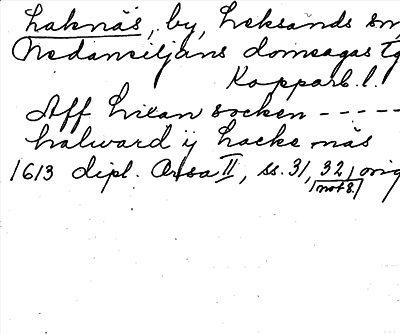 Laknäs, by, Leksands sn
Nedansiljans domsagas tg
Kopparb. l.
Aff Lixan socken -----
halward ij Lacke näs
1613 dipl. Orsa II, ss. 31, 32, orig
not 8.